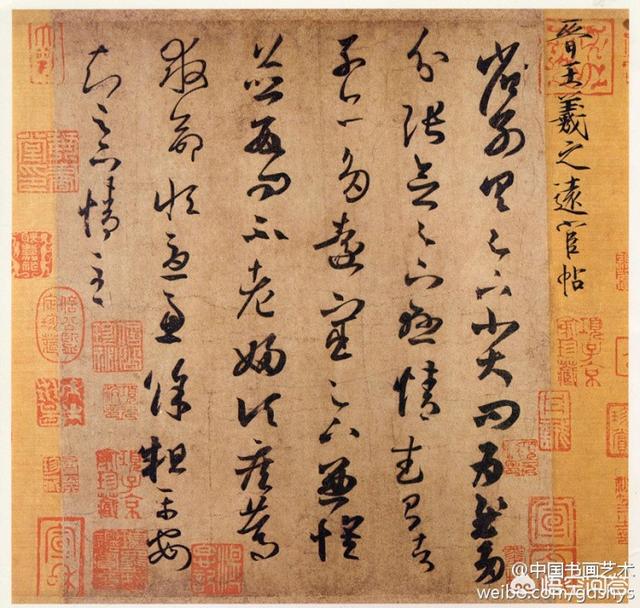 晉王羲之遠宦帖
省別具足下小大問為慰多
分張念足下懸情武昌諸
子亦多遠宦足下兼懷
並數問不老婦頃疾篤
救命恒憂慮餘粗平安
知足下情至
項子京家珍藏
@中国书画艺术
weibo.com/gdshys
悟空问答